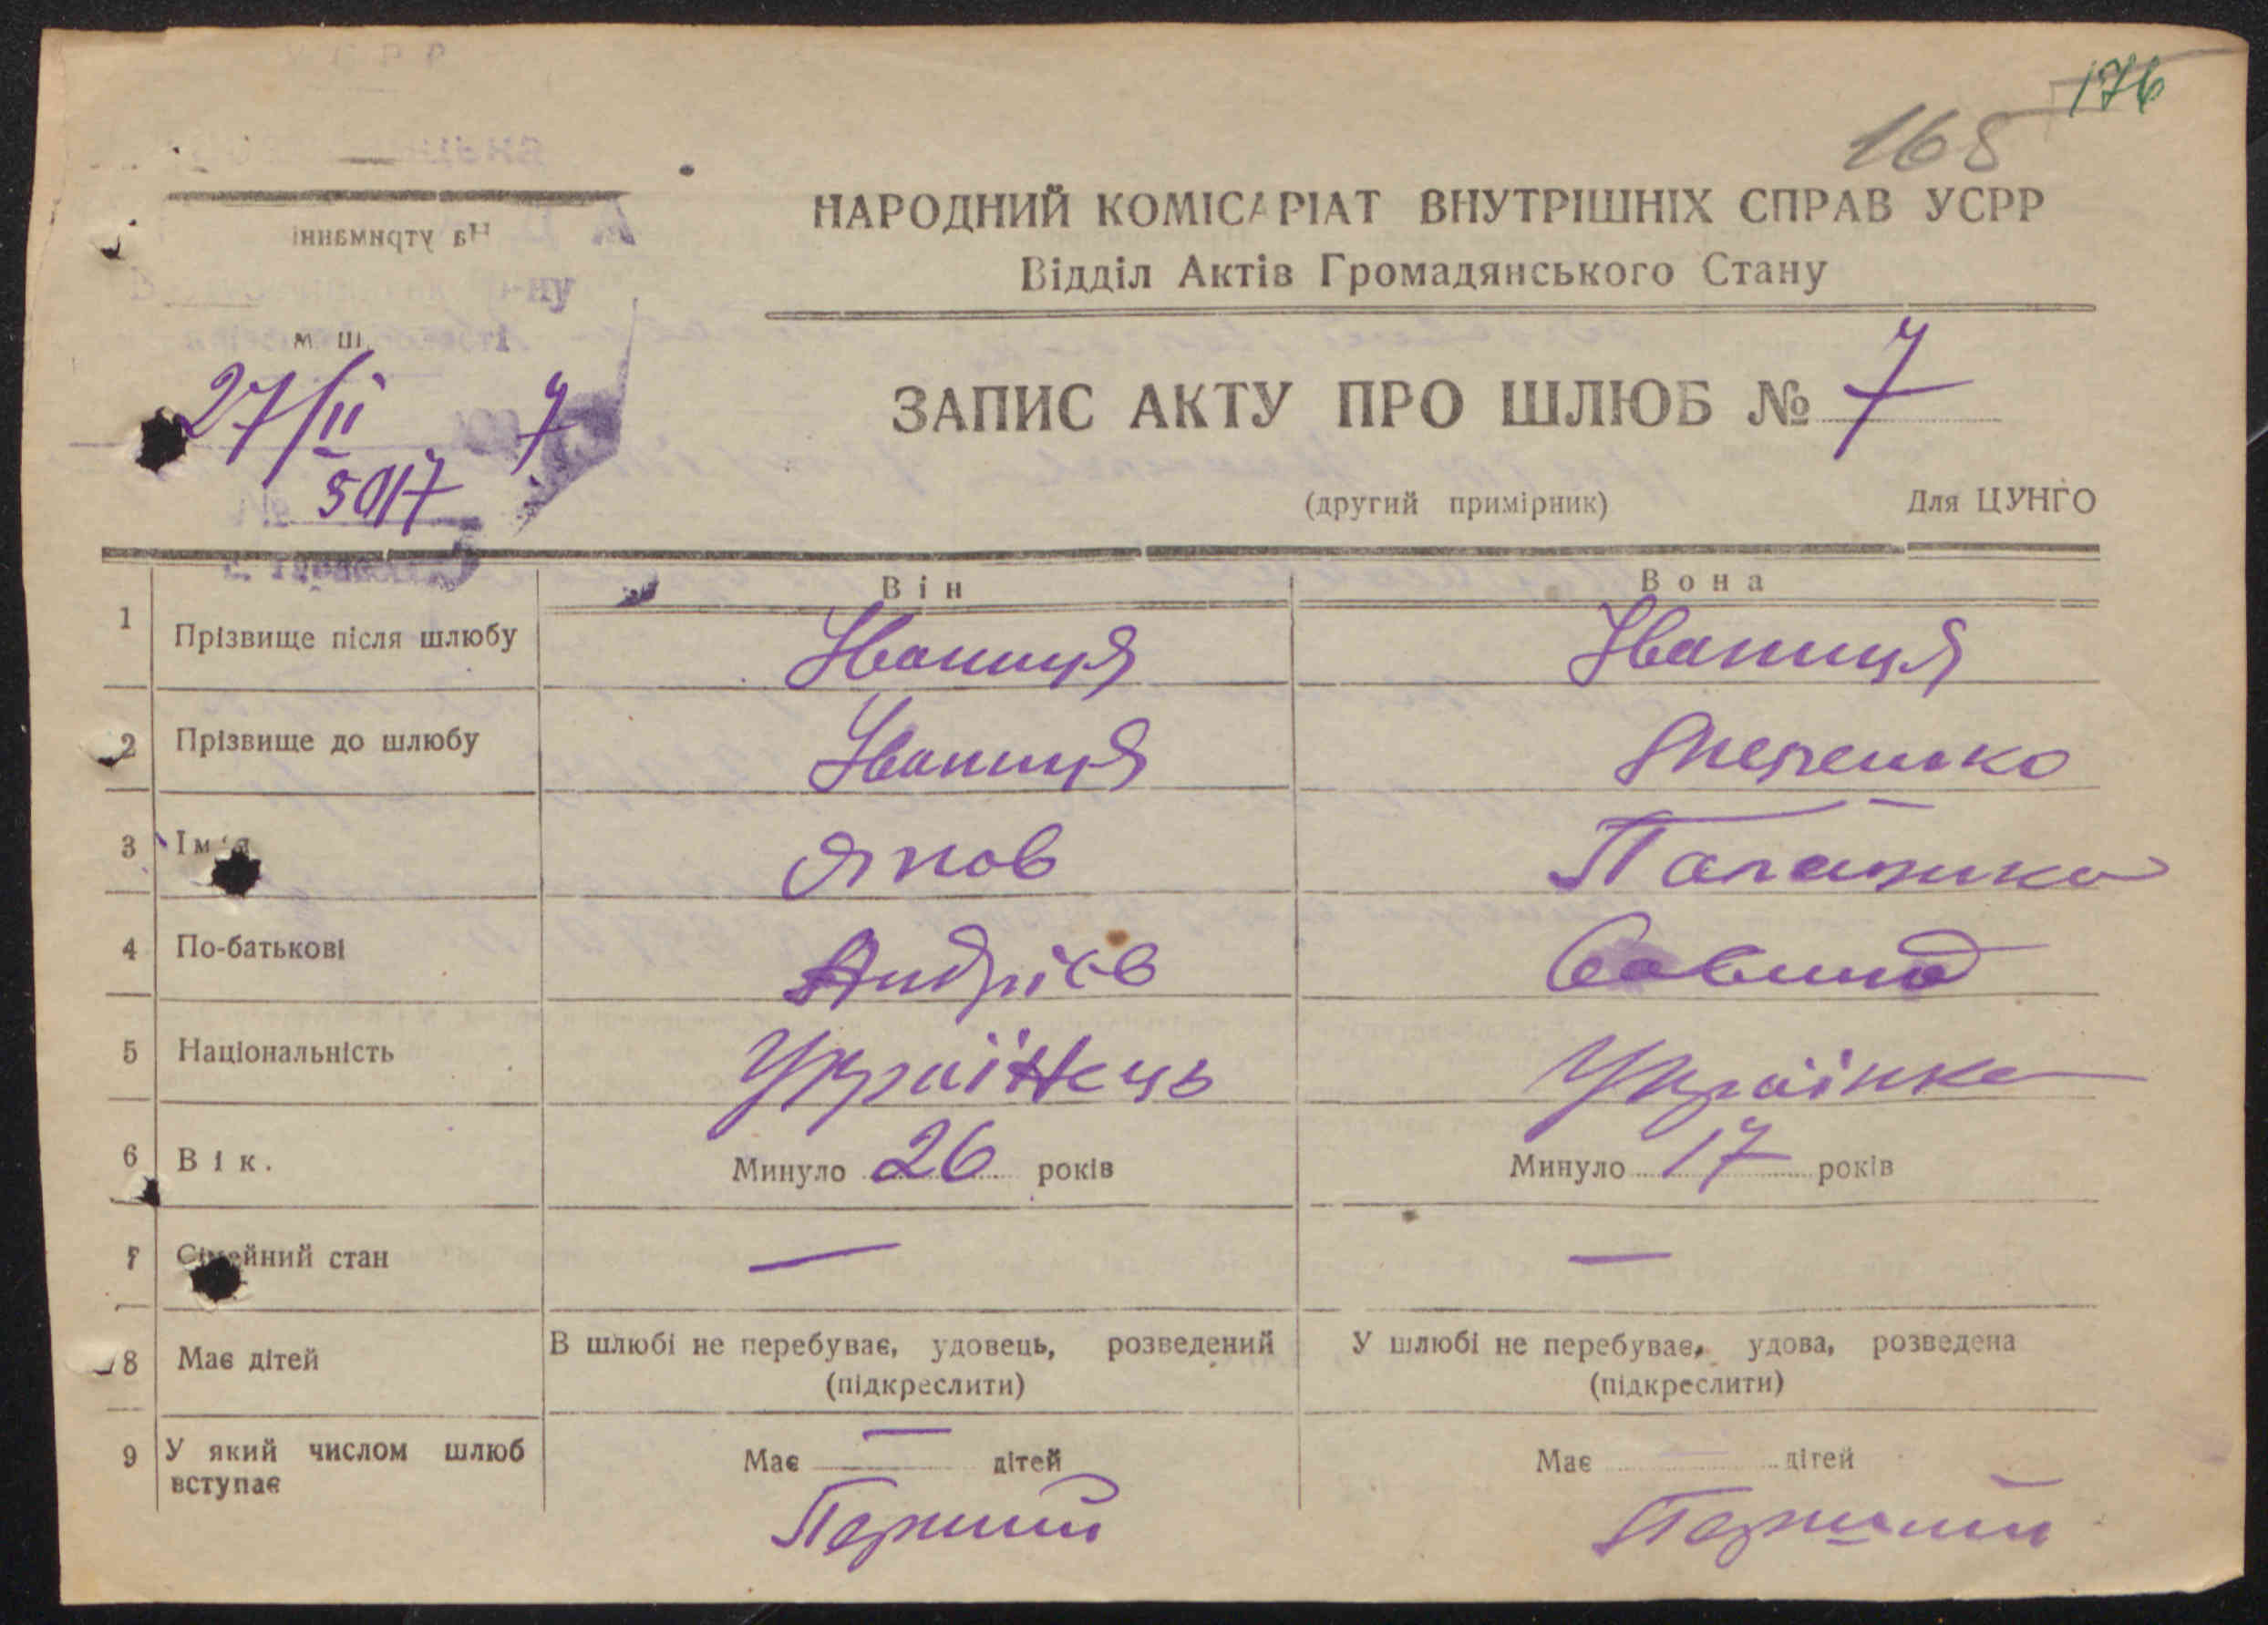 176
165
НАРОДНИЙ КОМІСАРІАТ ВНУТРІШНІХ СПРАВ УСРР
Відділ Актів Громадянського Стану
На утриманні
27/II 7
5017
ЗАПИС АКТУ ПРО ШЛЮБ № 7
(другий примірник) Для ЦУНГО
Він Вона
1 Прізвище після шлюбу Іваниця Іваниця
2 Прізвище до шлюбу Іваниця
3 Ім'я Яков Палажка
4 По-батькові Андрієв
5 Національність Українець Українка
6 Вік. Минуло 26 років Минуло 17 років
7 Сімейний стан — —
8 Має дітей В шлюбі не перебуває, удовець, розведений У шлюбі не перебуває, удова, розведена
(підкреслити) (підкреслити)
9 У який числом шлюб вступає Має — дітей Має — дітей
Перший Перший